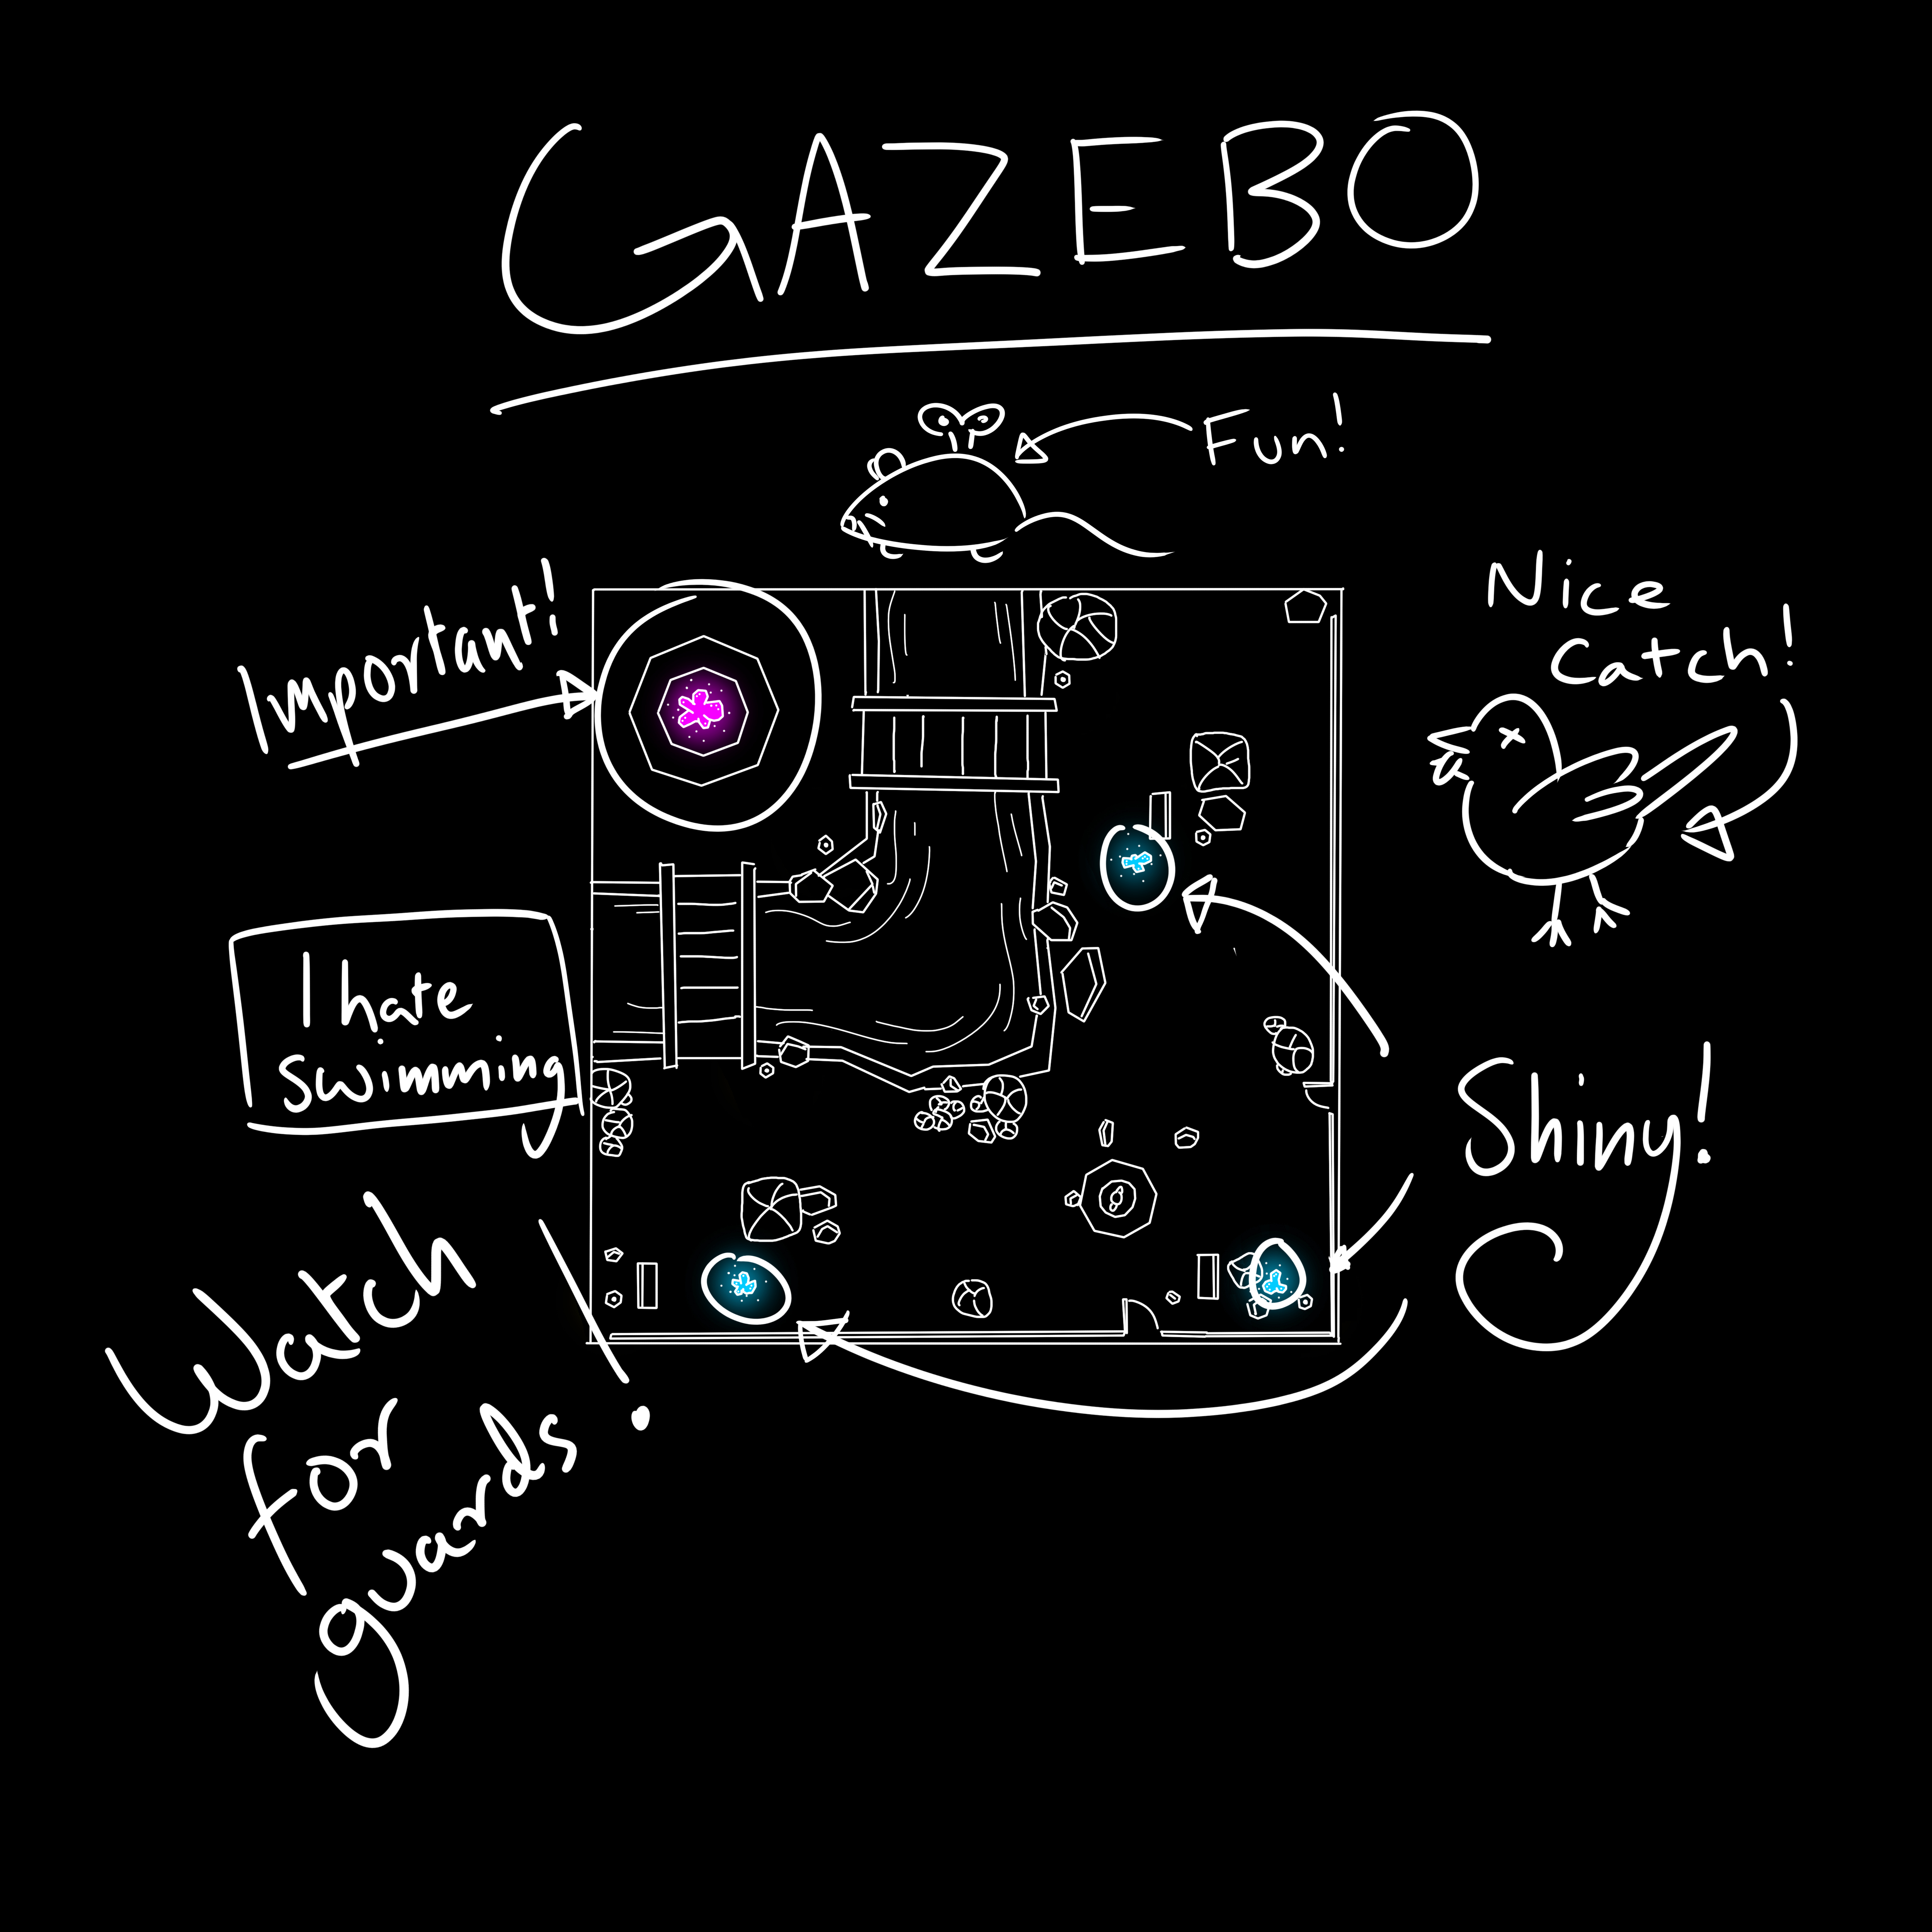 GAZEBO
Fun!
Important!
Nice
Catch!
I hate
swimming
Shiny!
Watch
For
guards!